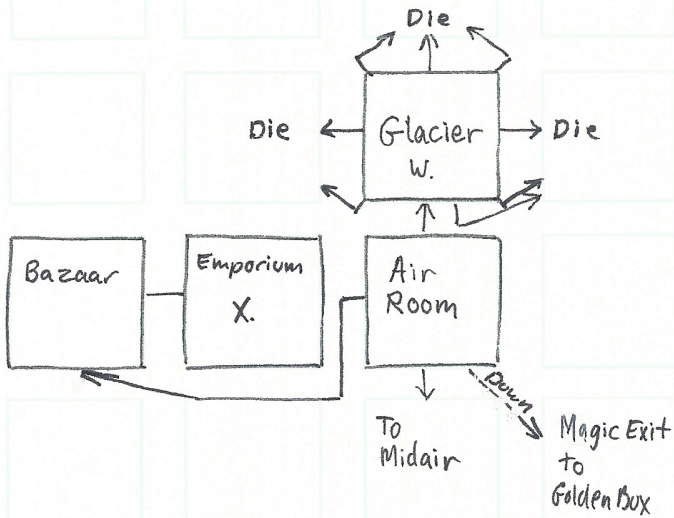 Die
Die
Glacier
W.
Die
Bazaar
Emporium
X.
Air
Room
Down
To
Midair
Magic Exit
to
Golden Box